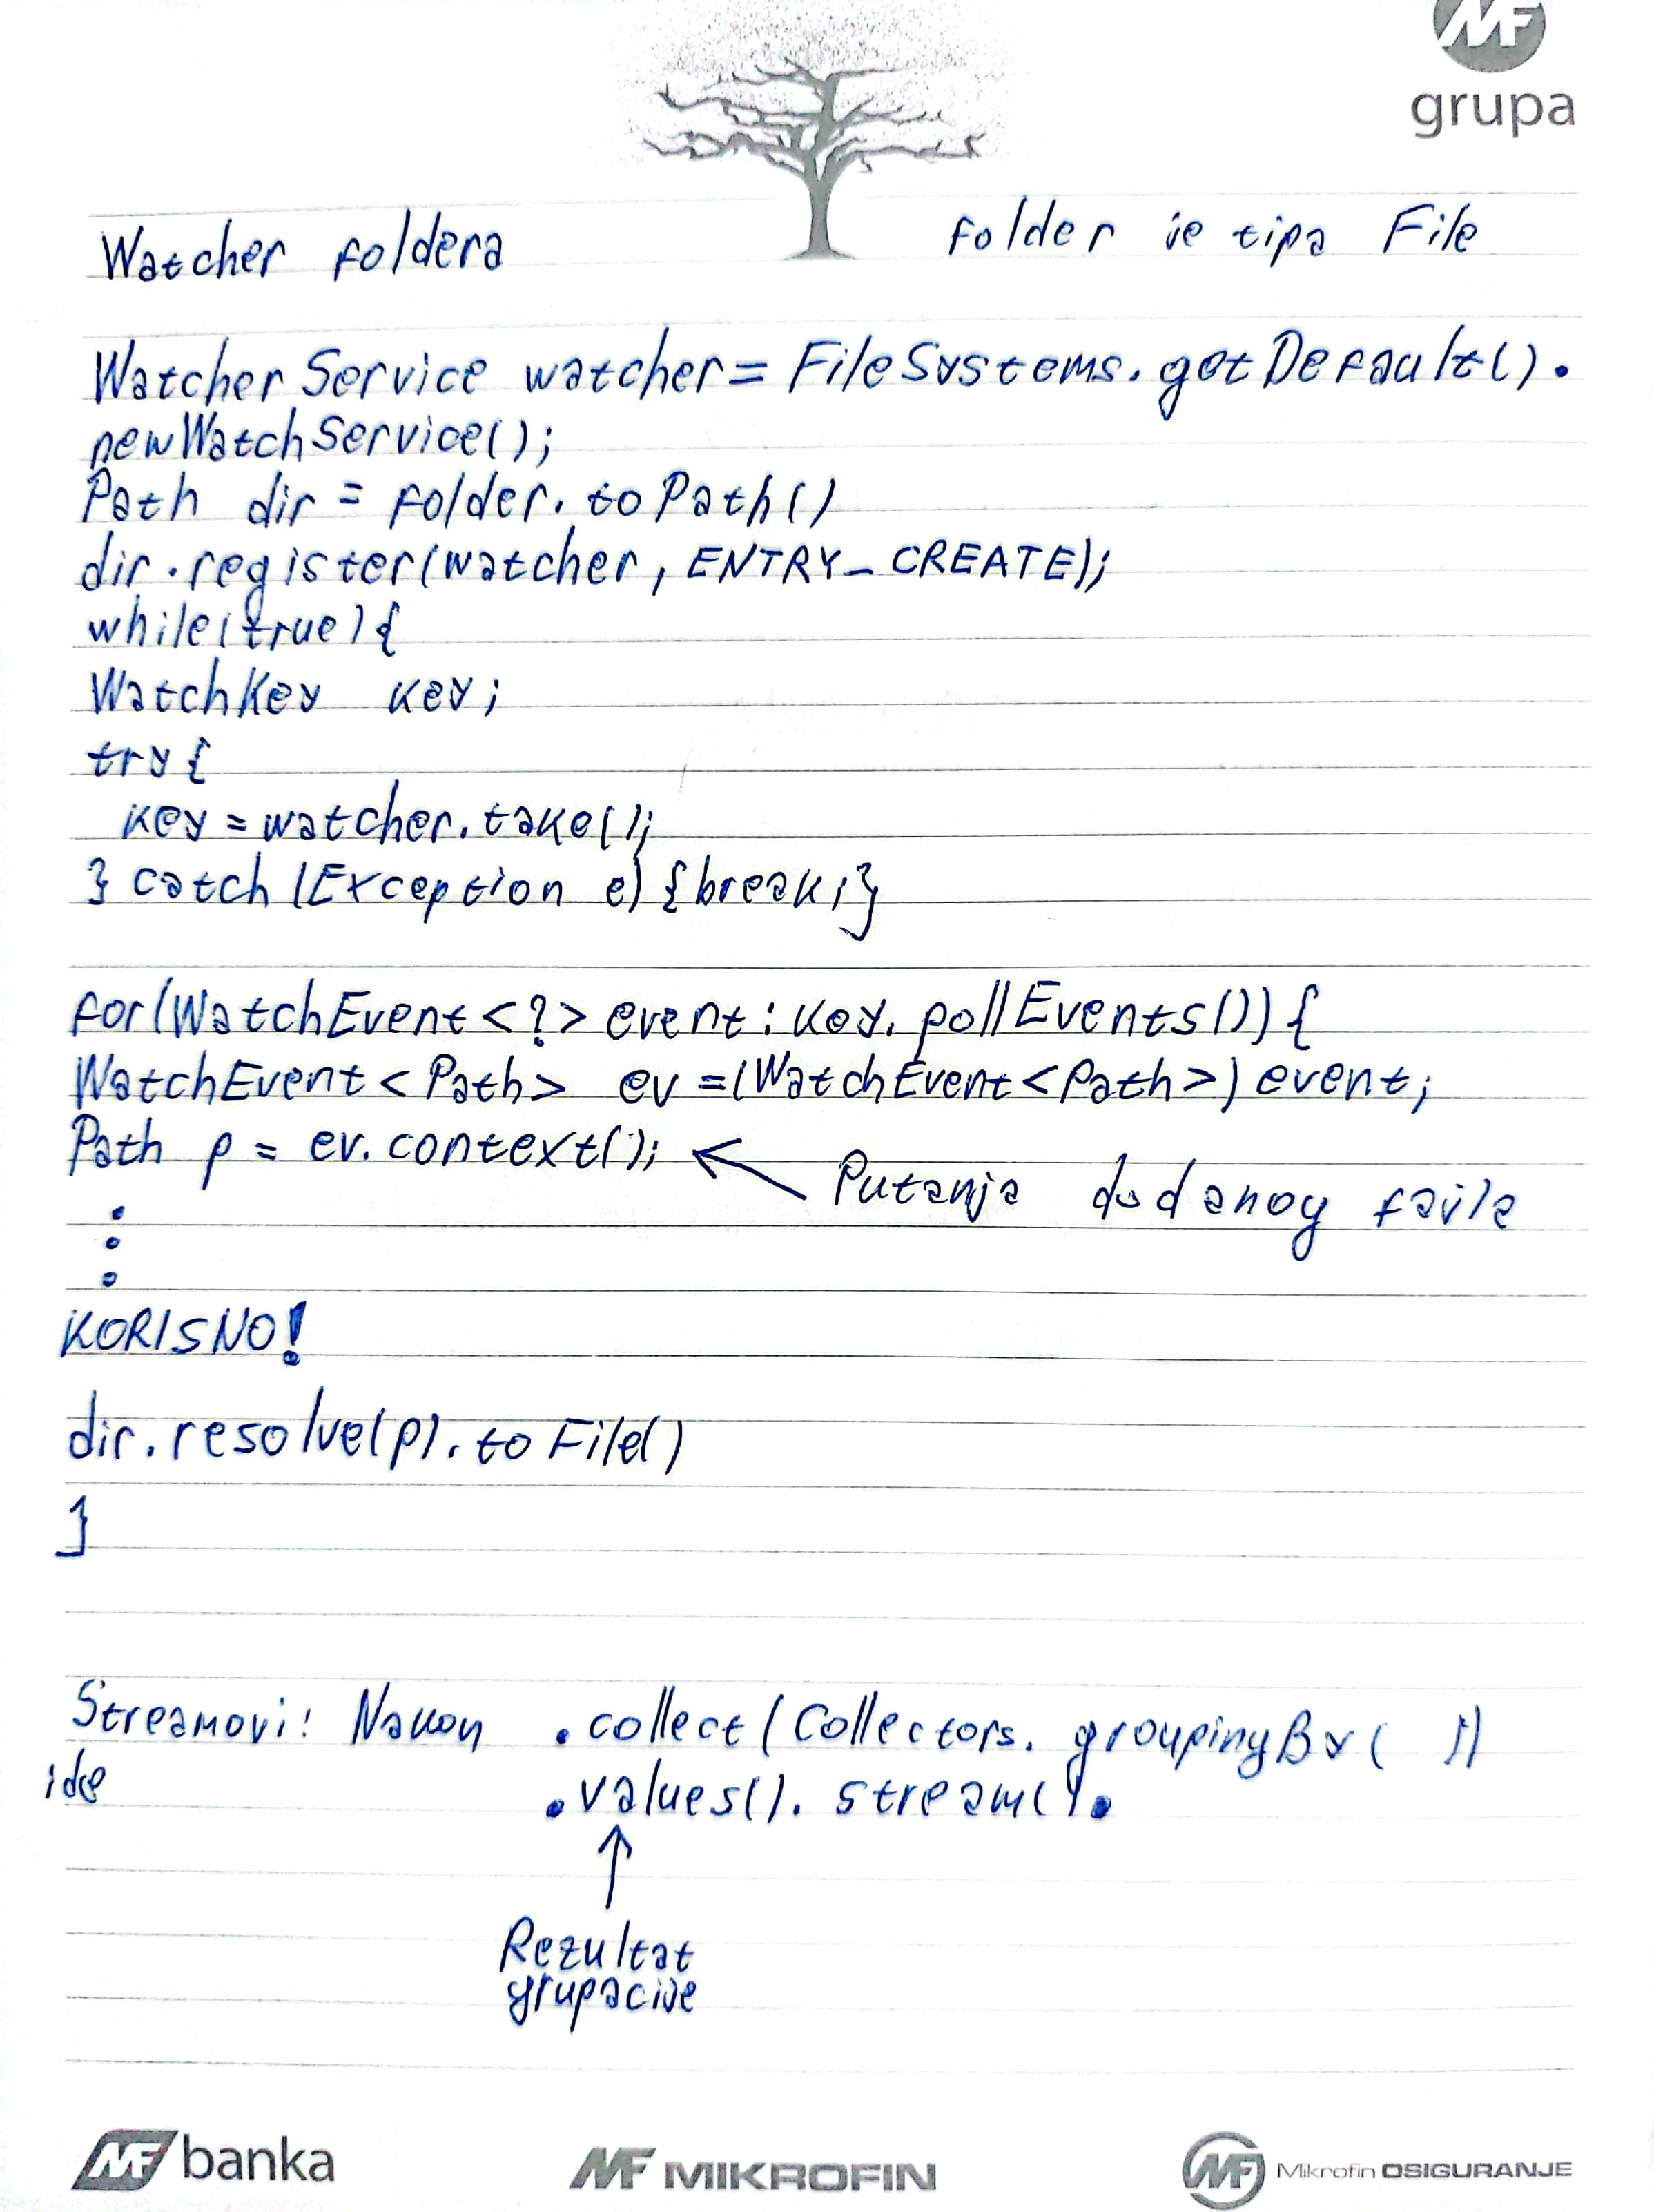 MF
grupa
Watcher foldera
folder je tipa File
WatcherService watcher = FileSystems.getDefault().
newWatchService();
Path dir = folder.toPath()
dir.register(watcher, ENTRY_CREATE);
while(true){
WatchKey key;
try{
key = watcher.take();
} catch (Exception e) {break;}
for(WatchEvent<?> event : key.pollEvents()){
WatchEvent<Path> ev = (WatchEvent<Path>) event;
Path p = ev.context();
Putanja dodanog fajla
KORISNO!
dir.resolve(p).toFile()
}
Streamovi: Nakon .collect(Collectors.groupingBy( ))
ide .values().stream().
Rezultat
grupacije
MF banka
MF MIKROFIN
MF Mikrofin OSIGURANJE